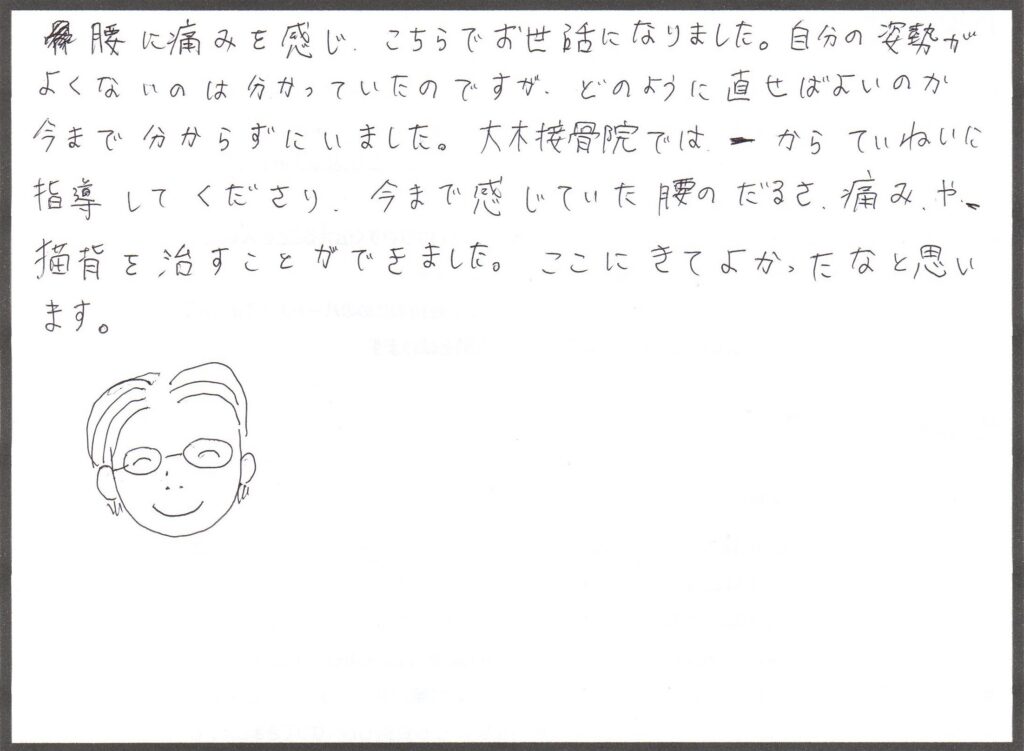 腰に痛みを感じ、こちらでお世話になりました。自分の姿勢が
よくないのは分かっていたのですが、どのように直せばよいのか
今まで分からずにいました。大木接骨院では、一からていねいに
指導してくださり、今まで感じていた腰のだるさ、痛み、や、
猫背を治すことができました。ここにきてよかったなと思い
ます。